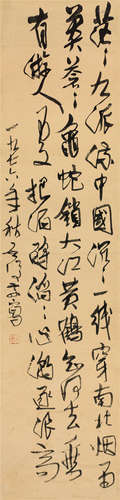 茫〻九派流中國沉〻一线穿南北烟雨
莽蒼〻龜蛇鎖大江黄鶴知何去剩
有遊人處把酒酹滔〻心潮逐浪高
一九七六年秋